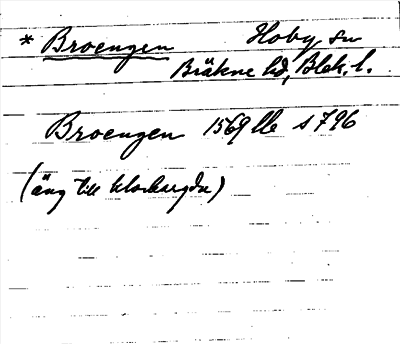 * Broengen Hoby sn
Bräkne hd, Blek. l.
Broengen 1569 lle s 796
(äng till klockargdn)